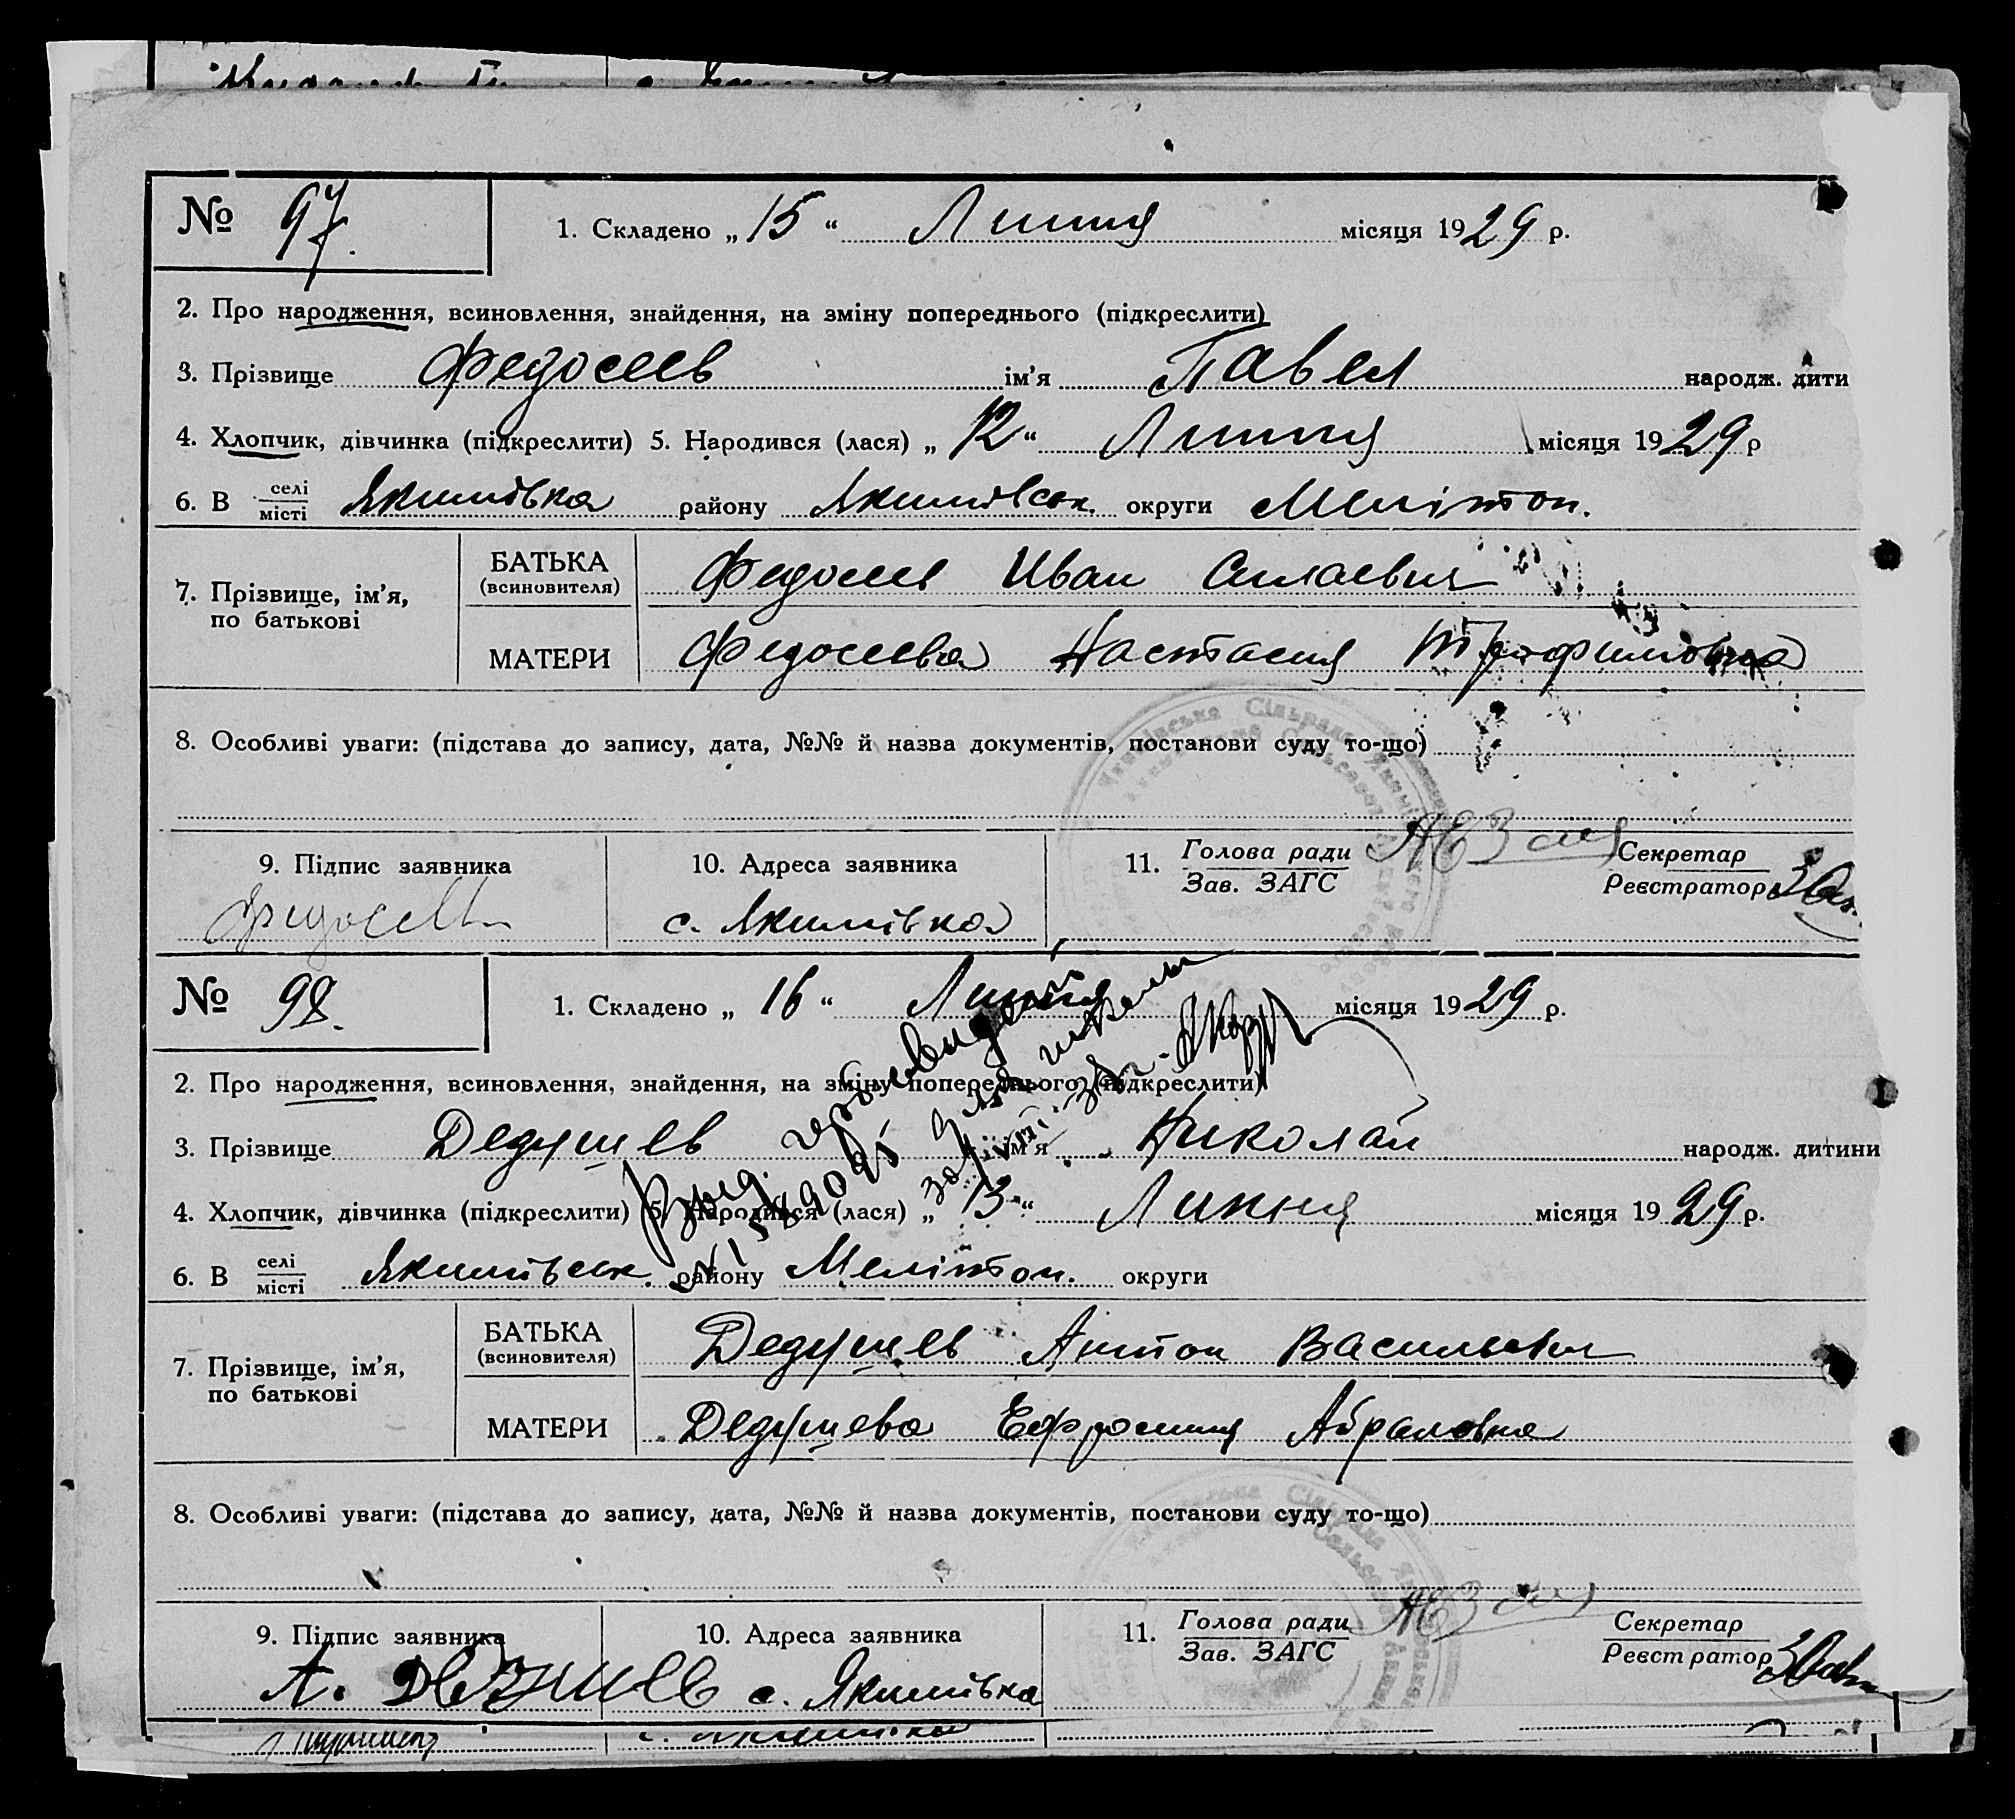 № 97.
1. Складено „ 15 “ Липня місяця 1929 р.
2. Про народження, всиновлення, знайдення, на зміну попереднього (підкреслити)
3. Прізвище Федосеев ім’я Павел народж. дити
4. Хлопчик, дівчинка (підкреслити) 5. Народився (лася) „ 12 “ Липня місяця 1929 р
6. В селі місті Якимівка району Якимівськ. округи Мелітоп.
7. Прізвище, ім’я, по батькові
БАТЬКА (всиновителя) Федосеев Иван Силаевич
МАТЕРИ Федосеева Настасия Трофимовна
8. Особливі уваги: (підстава до запису, дата, №№ й назва документів, постанови суду то-що)
9. Підпис заявника 10. Адреса заявника 11. Голова ради Зав. ЗАГС Секретар Реєстратор
Федосеев с. Якимівка
№ 98.
1. Складено „ 16 “ Липня місяця 1929 р.
2. Про народження, всиновлення, знайдення, на зміну попереднього (підкреслити)
3. Прізвище Дедушев ім’я Николай народж. дитини
4. Хлопчик, дівчинка (підкреслити) 5. Народився (лася) „ 13 “ Липня місяця 1929 р.
6. В селі місті Якимівськ. району Мелітоп. округи
7. Прізвище, ім’я, по батькові
БАТЬКА (всиновителя) Дедушев Антон Васильевич
МАТЕРИ Дедушева Ефросиния Абрамовна
8. Особливі уваги: (підстава до запису, дата, №№ й назва документів, постанови суду то-що)
9. Підпис заявника 10. Адреса заявника 11. Голова ради Зав. ЗАГС Секретар Реєстратор
А. Дедушев с. Якимівка